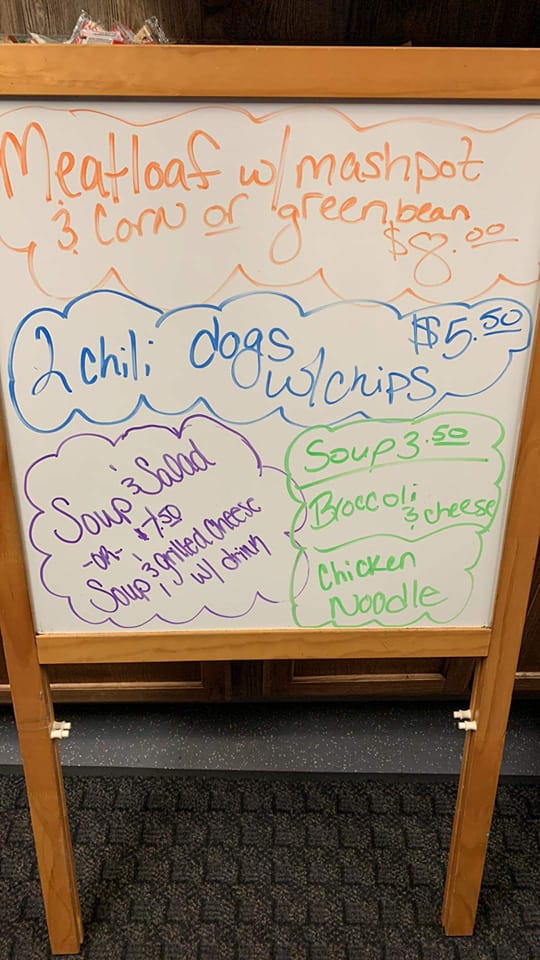 Meatloaf w/ mashpot
& Corn or green bean
$8.00
2 chili dogs $5.50
w/ chips
Soup & Salad
-or- $7.50
Soup & grilled cheese
w/ drink
Soup 3.50
Broccoli
& cheese
Chicken
Noodle